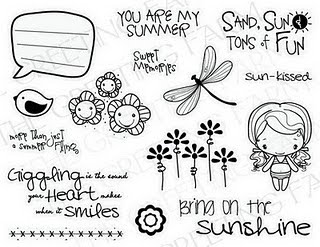 YOU ARE MY
SUMMER
SAND, SUN
TONS of FUN
Sweet
Memories
sun-kissed
more than just
a summer fling
Giggling is the sound
your Heart makes
when it smiles
bring on the
sunshine